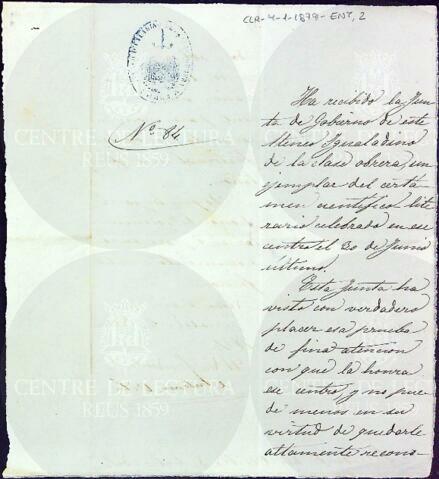 CLR-4-1-1879-ENT, 2
Nº 84
Ha recibido la Jun
ta de Gobierno de este
Ateneo Igualadino
de la clase obrera, un
ejemplar del certá
men cientifico lite
rario celebrado en ese
centro el 30 de Junio
último.
Esta Junta ha
visto con verdadero
placer esa prueba
de fina atencion
con que la honra
ese centro, y no pue
de menos en su
virtud de quedarle
altamente recono-
CENTRE DE LECTURA
REUS 1859
CENTRE DE LECTURA
REUS 1859